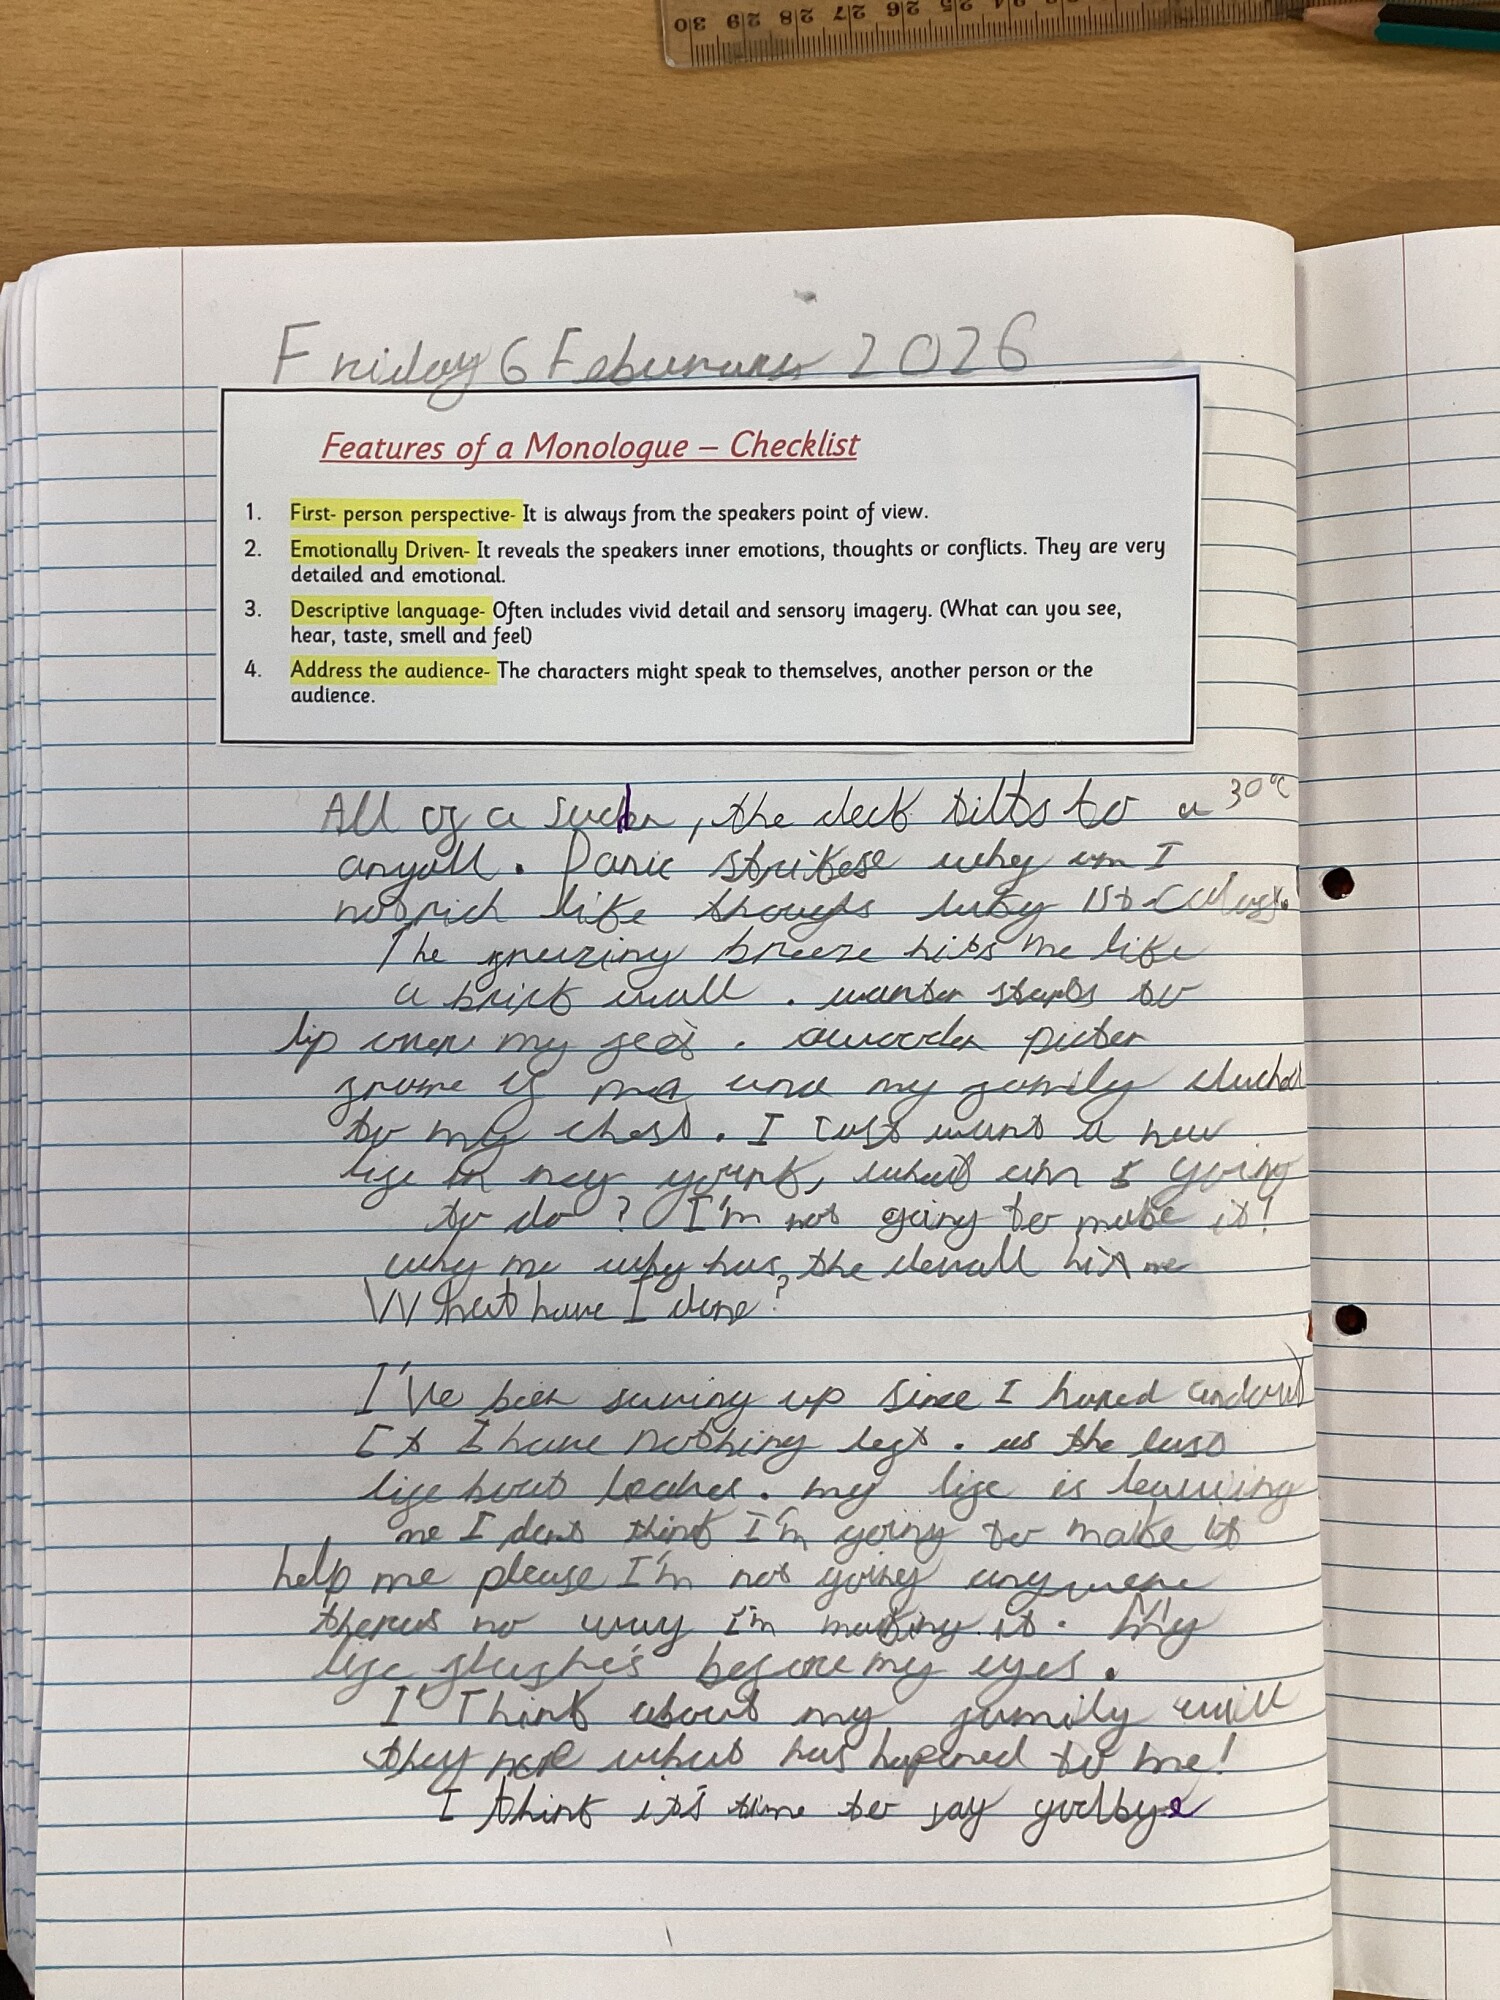 30 29 28 27 26 25 24
Friday 6 Feburary 2026
Features of a Monologue – Checklist
1. First- person perspective- It is always from the speakers point of view.
2. Emotionally Driven- It reveals the speakers inner emotions, thoughts or conflicts. They are very
detailed and emotional.
3. Descriptive language- Often includes vivid detail and sensory imagery. (What can you see,
hear, taste, smell and feel)
4. Address the audience- The characters might speak to themselves, another person or the
audience.
All of a , the deck tilts to a 30°C
angall. Panic why am I
not rich like luky 1st
The breeze hits me like
a brick wall. to
lip my . picter
frame of me and my family
to my chest. I want a new
life in , what am I going
to do? I'm not going to make it!
why me why has the devall hit me
What have I done?
I've been saving up since I
I have nothing left. as the last
life boat . my life is leaving
me I dont think I'm going to make it
help me please I'm not going anywere
no way I'm making it. My
life flashe's before my eyes.
I think about my family will
they what has hapened to me!
I think it's time to say goodbye